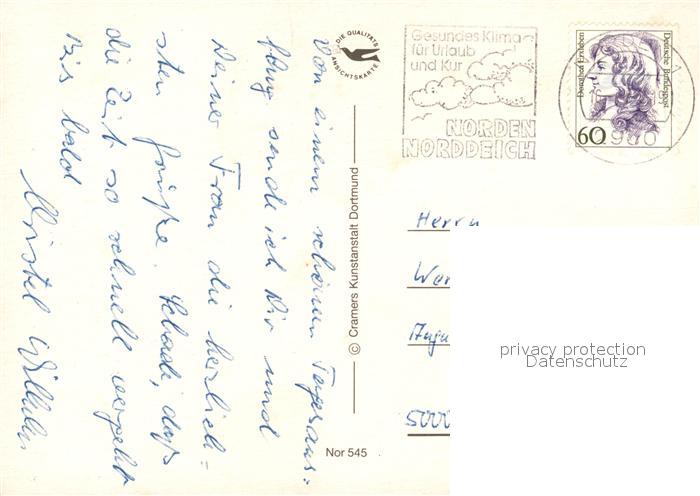 Von einem schönen Tagesaus-
flug sende ich Dir und
Deiner Frau die herzlich-
sten Grüße. Schade, daß
die Zeit so schnell vergeht
Bis bald
Christel Wilhelm
DIE QUALITÄTS
ANSICHTSKARTE
© Cramers Kunstanstalt Dortmund
Nor 545
Gesundes Klima
für Urlaub
und Kur
NORDEN
NORDDEICH
Dorothea Erxleben
Deutsche Bundespost
60
Herrn
Wer
Augu
5000
privacy protection
Datenschutz